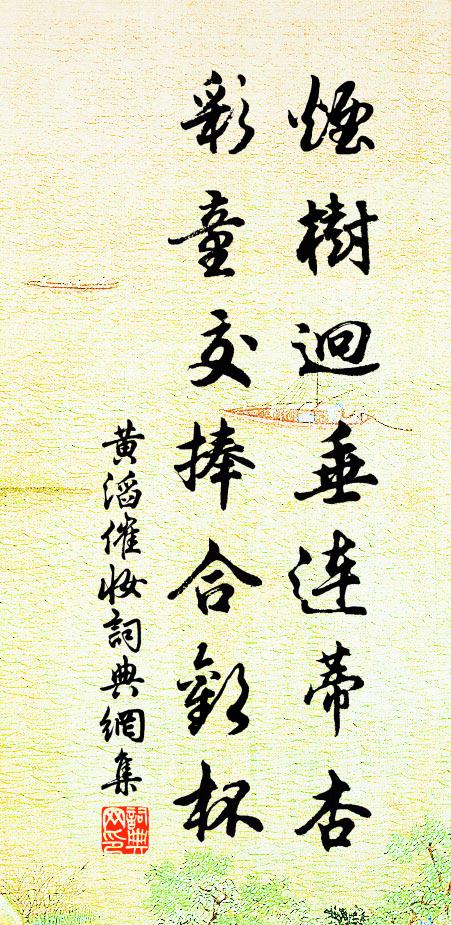 煙樹迥垂連蒂杏
彩童交捧合歡杯
黃滔催妝詞典網集
詞典网印